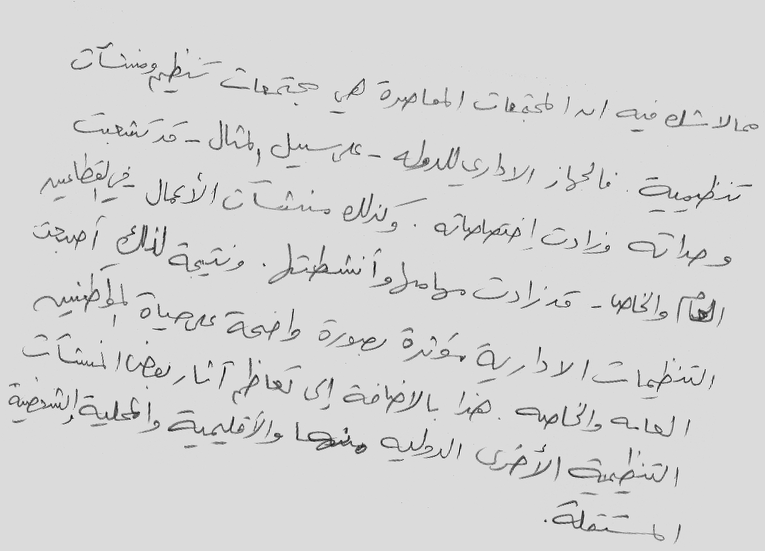 مما لا شك فيه ان المجتمعات المعاصرة هي مجتمعات تنظيم ومنشآت
تنظيمية . فالجهاز الاداري للدوله - على سبيل المثال - قد تشعبت
وحداته وزادت إختصاصاته . وكذلك منشآت الأعمال - في القطاعين
العام والخاص - قد زادت مهامها وأنشطتها . ونتيجة لذلك أصبحت
التنظيمات الادارية مؤثرة بصورة واضحة على حياة المواطنين
العامه والخاصه . هذا بالاضافة إلى تعاظم آثار بعض المنشآت
التنظيمية الأخرى الدوليه منها والأقليمية والمحلية والشخصية
المستقلة .